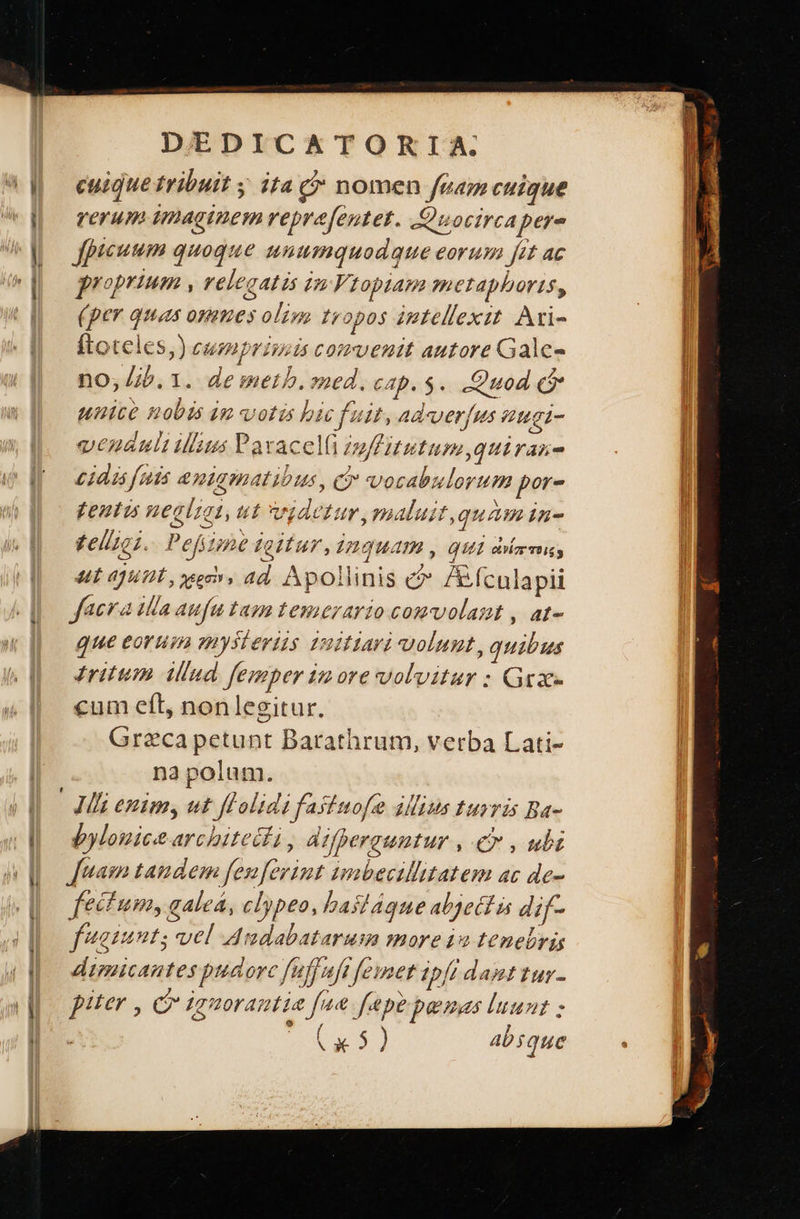 DEDICATORIA.
cuique tribuit ; ita & nomen ſuam cuique
rerum imaginem repræſentet. Quocirca per-
ſpicuum quoque unumquodque eorum ſit ac
proprium, relegatis in Vtopiam metaphoris,
(per quas omnes olim tropos intellexit Ari-
ſtoteles,) cumprimis convenit autore Gale-
no, lib. 1. de meth. med. cap. 5. Quod &
unice nobis in votis hic fuit, adverſus nugi-
venduli illius Paracelſi inſtitutum, qui ran-
cidis ſuis ænigmatibus, & vocabulorum por-
tentis negligi, ut videtur, maluit, quàm in-
telligi. Peſsimè igitur, inquam, qui ἀνίπτοις,
ut ajunt, χερσὶν, ad Apollinis & Æſculapii
ſacra illa auſu tam temerario convolant, at-
que eorum mysteriis initiari volunt, quibus
tritum illud ſemper in ore volvitur : Græ-
cum eſt, non legitur.
Græca petunt Barathrum, verba Lati-
na polum.
Illi enim, ut ſtolidi fastuoſæ illius turris Ba-
bylonicæ architecti, diſperguntur, &, ubi
ſuam tandem ſenſerint imbecillitatem ac de-
fectum, galeâ, clypeo, hastâque abjectis dif-
fugiunt; vel Andabatarum more in tenebris
dimicantes pudore ſuffuſi ſemet ipſi dant tur-
piter, & ignorantiæ ſuæ ſæpe pœnas luunt :
(* 5) absque